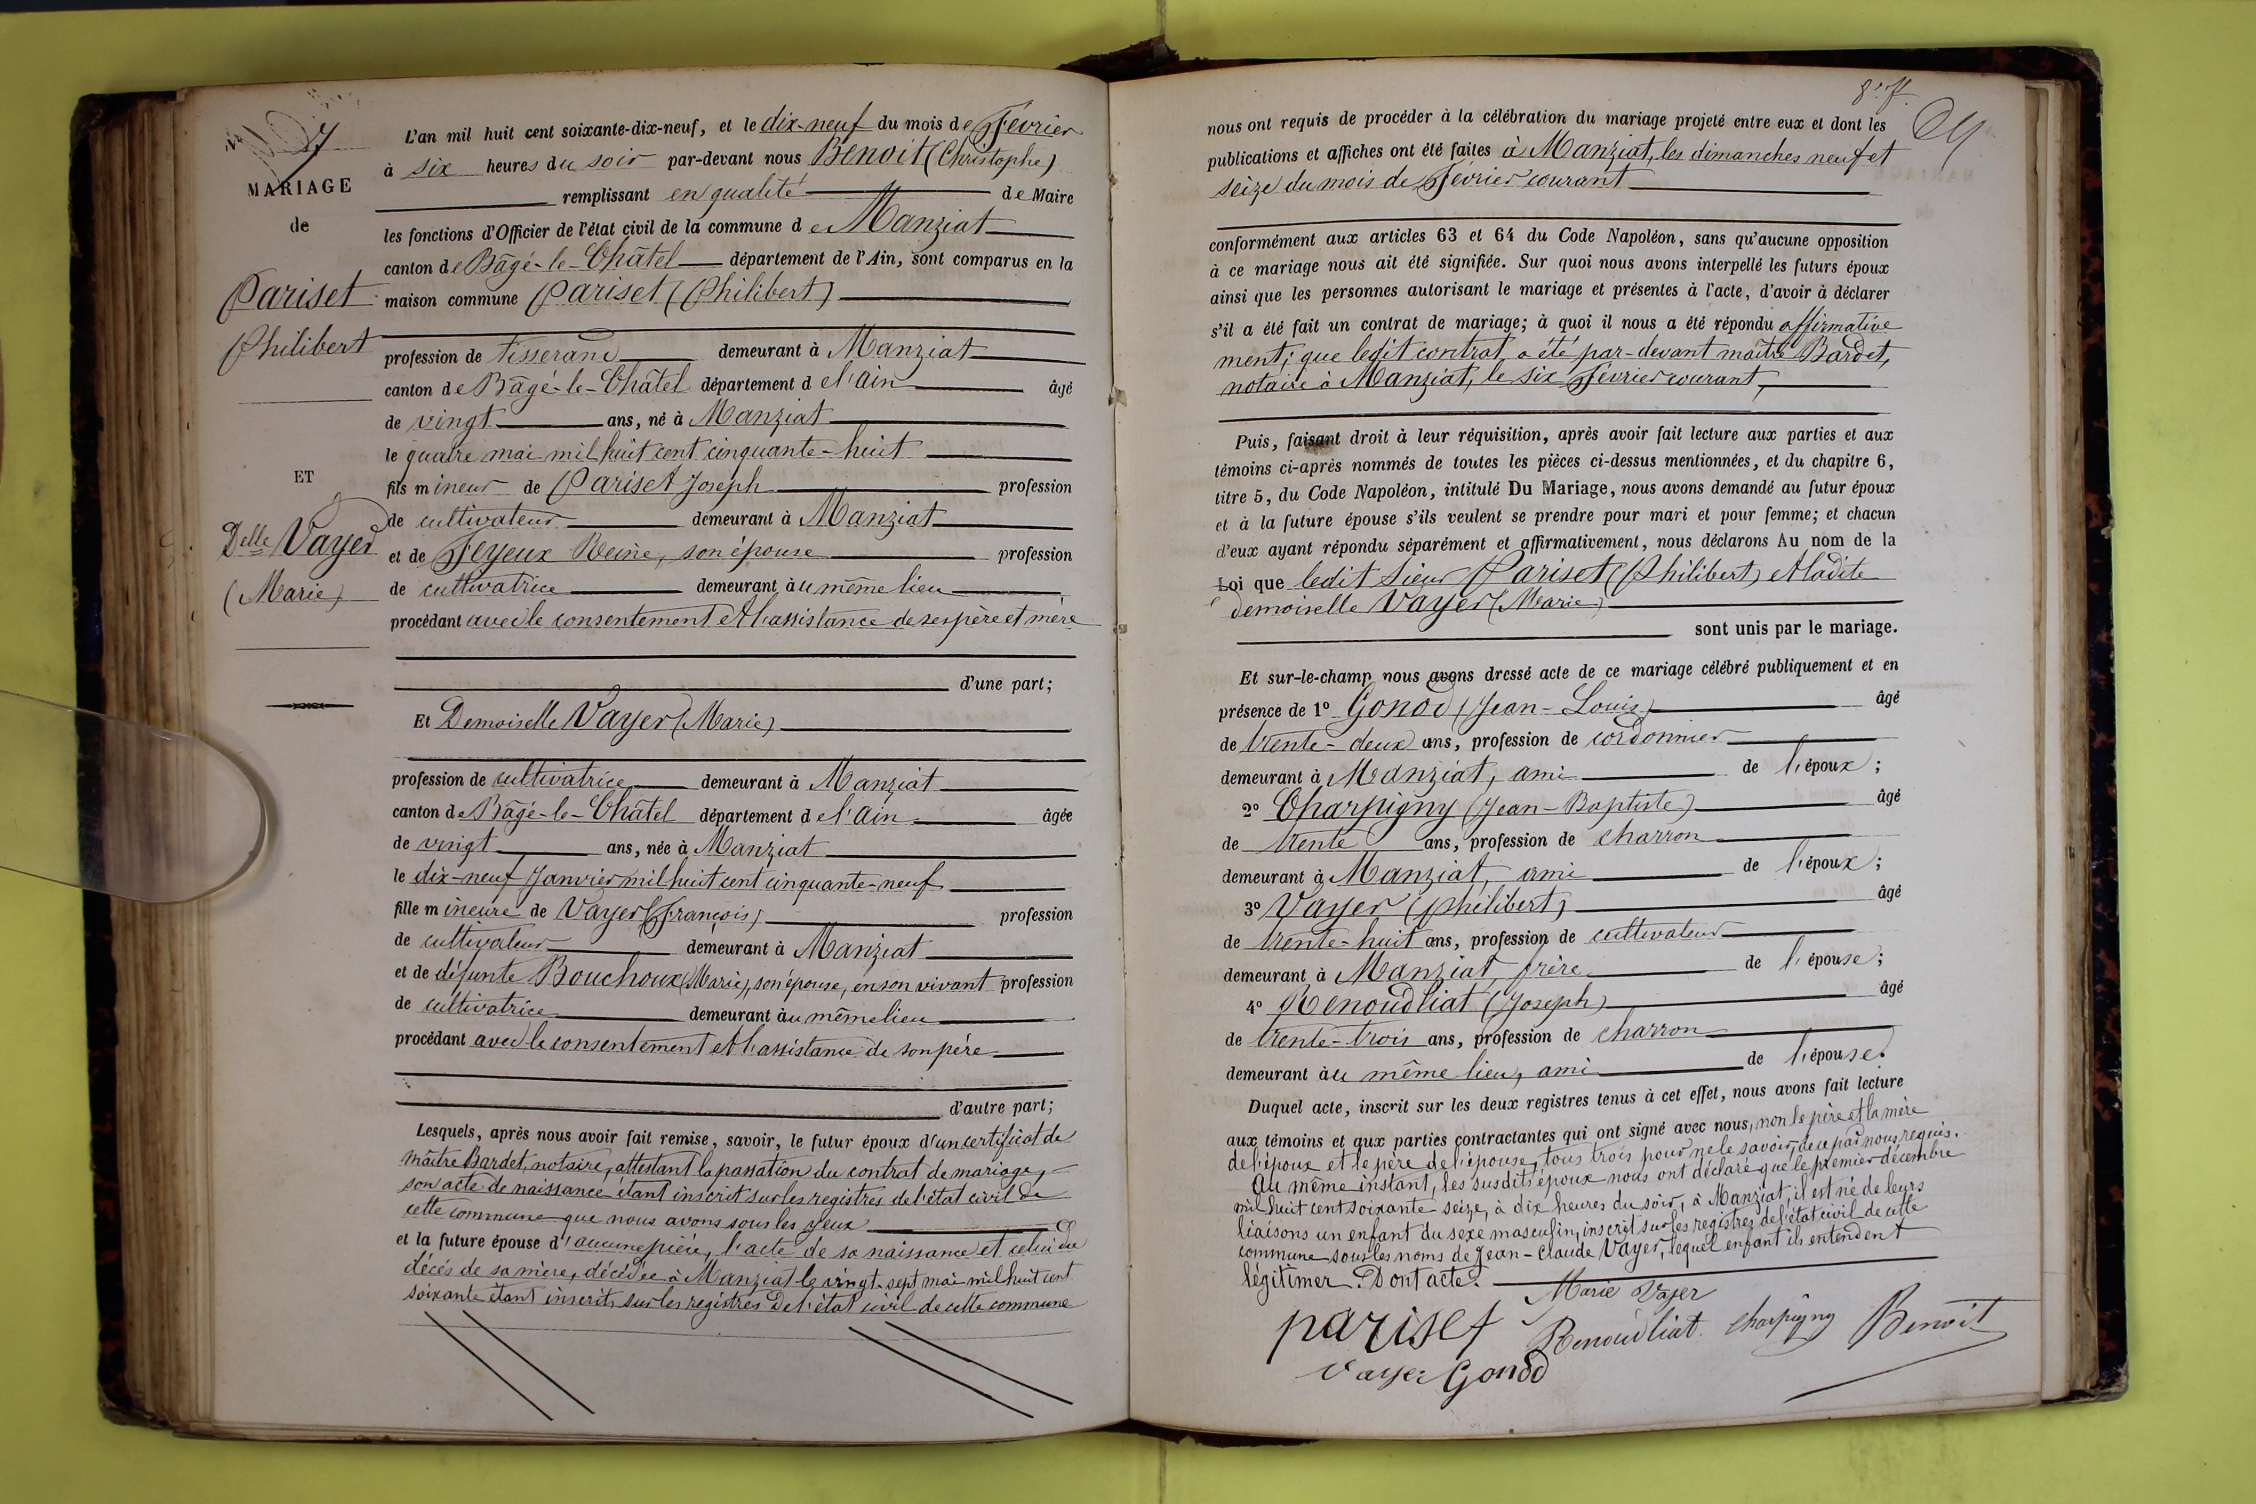 7
MARIAGE
de
Pariset
Philibert
ET
Delle Vayer
(Marie)
L'an mil huit cent soixante-dix-neuf, et le dix-neuf du mois de Février
à six heures du soir par-devant nous Benoit (Christophe)
remplissant en qualité de Maire
les fonctions d'Officier de l'état civil de la commune de Manziat
canton de Bâgé-le-Châtel département de l'Ain, sont comparus en la
maison commune Pariset (Philibert)
profession de tisserand demeurant à Manziat
canton de Bâgé-le-Châtel département de l'ain âgé
de vingt ans, né à Manziat
le quatre mai mil huit cent cinquante-huit
fils mineur de Pariset Joseph profession
de cultivateur demeurant à Manziat
et de Feyeux Reine, son épouse profession
de cultivatrice demeurant au même lieu
procédant avec le consentement et l'assistance de ses père et mère
d'une part;
Et Demoiselle Vayer (Marie)
profession de cultivatrice demeurant à Manziat
canton de Bâgé-le-Châtel département de l'ain âgée
de vingt ans, née à Manziat
le dix-neuf Janvier mil huit cent cinquante-neuf
fille mineure de Vayer (François) profession
de cultivateur demeurant à Manziat
et de défunte Bouchoux (Marie), son épouse, en son vivant profession
de cultivatrice demeurant au même lieu
procédant avec le consentement et l'assistance de son père
d'autre part;
Lesquels, après nous avoir fait remise, savoir, le futur époux d'un certificat de
maître Bardet, notaire, attestant la passation du contrat de mariage,
son acte de naissance étant inscrit sur les registres de l'état civil de
cette commune que nous avons sous les yeux
et la future épouse d'aucune pièce, l'acte de sa naissance et celui du
décès de sa mère, décédée à Manziat le vingt-sept mai mil huit cent
soixante étant inscrits sur les registres de l'état civil de cette commune
nous ont requis de procéder à la célébration du mariage projeté entre eux et dont les
publications et affiches ont été faites à Manziat, les dimanches neuf et
seize du mois de Février courant
conformément aux articles 63 et 64 du Code Napoléon, sans qu'aucune opposition
à ce mariage nous ait été signifiée. Sur quoi nous avons interpellé les futurs époux
ainsi que les personnes autorisant le mariage et présentes à l'acte, d'avoir à déclarer
s'il a été fait un contrat de mariage; à quoi il nous a été répondu affirmative
ment; que ledit contrat a été par-devant maître Bardet,
notaire à Manziat, le six Février courant,
Puis, faisant droit à leur réquisition, après avoir fait lecture aux parties et aux
témoins ci-après nommés de toutes les pièces ci-dessus mentionnées, et du chapitre 6,
titre 5, du Code Napoléon, intitulé Du Mariage, nous avons demandé au futur époux
et à la future épouse s'ils veulent se prendre pour mari et pour femme; et chacun
d'eux ayant répondu séparément et affirmativement, nous déclarons Au nom de la
Loi que ledit Sieur Pariset (Philibert) et ladite
demoiselle Vayer (Marie)
sont unis par le mariage.
Et sur-le-champ nous avons dressé acte de ce mariage célébré publiquement et en
présence de 1º Gonod (Jean-Louis) âgé
de trente-deux ans, profession de cordonnier
demeurant à Manziat, ami de l'époux;
2º Charpigny (Jean-Baptiste) âgé
de trente ans, profession de charron
demeurant à Manziat, ami de l'époux;
3º Vayer (Philibert) âgé
de trente-huit ans, profession de cultivateur
demeurant à Manziat, frère de l'épouse;
4º Renoudliat (Joseph) âgé
de trente-trois ans, profession de charron
demeurant au même lieu, ami de l'épouse.
Duquel acte, inscrit sur les deux registres tenus à cet effet, nous avons fait lecture
aux témoins et aux parties contractantes qui ont signé avec nous, non le père et la mère
de l'époux et le père de l'épouse, tous trois pour ne le savoir, de ce par nous requis.
Au même instant, les susdits époux nous ont déclaré que le premier décembre
mil huit cent soixante seize, à dix heures du soir, à Manziat, il est né de leurs
liaisons un enfant du sexe masculin, inscrit sur les registres de l'état civil de cette
commune sous les noms de Jean-Claude Vayer, lequel enfant ils entendent
légitimer. Dont acte.
Marie Vayer
pariset Renoudliat. Charpigny Benoit
Vayer Gonod